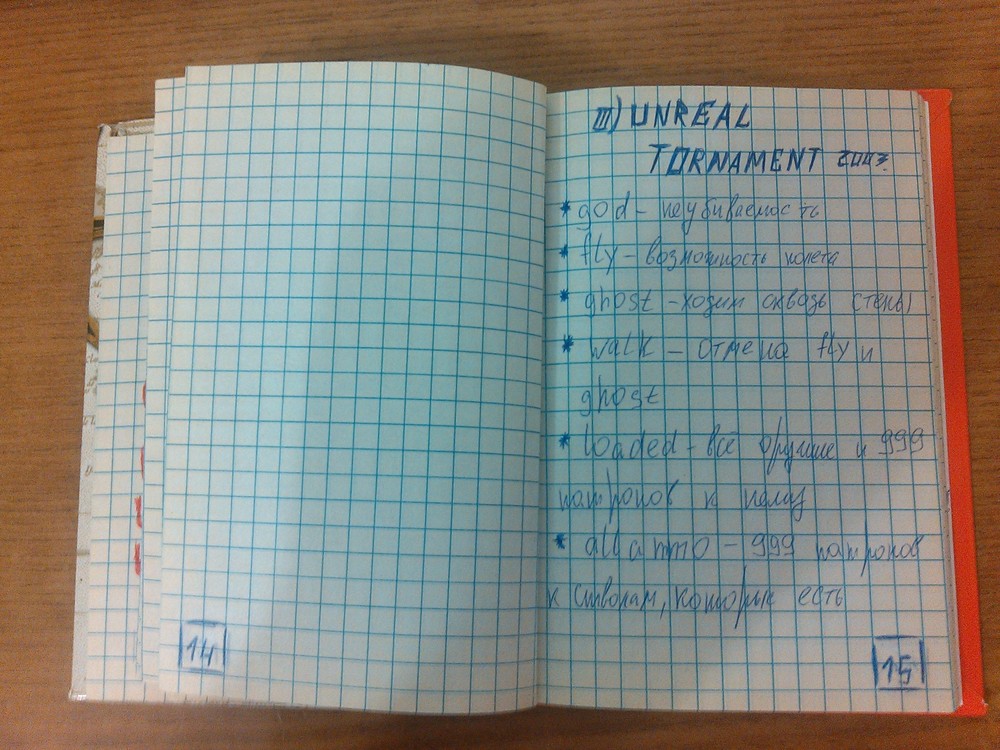 III) UNREAL
TORNAMENT 2003
* god - неубиваемость
* fly - возможность полета
* ghost - ходим сквозь стены
* walk - отмена fly и
ghost
* loaded - всё оружие и 999
патронов к нему
* allammo - 999 патронов
к стволам, которые есть
14
15